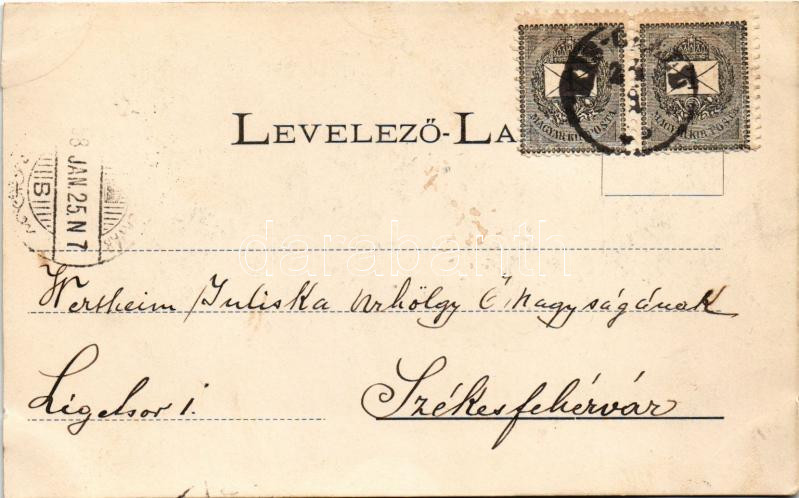 LEVELEZŐ-LA
MAGYAR KIR. POSTA
MAGYAR KIR. POSTA
8 JAN. 25. N 7
darabanth
Wertheim Juliska úrhölgy Ő Nagyságának
Ligetsor 1.
Székesfehérvár